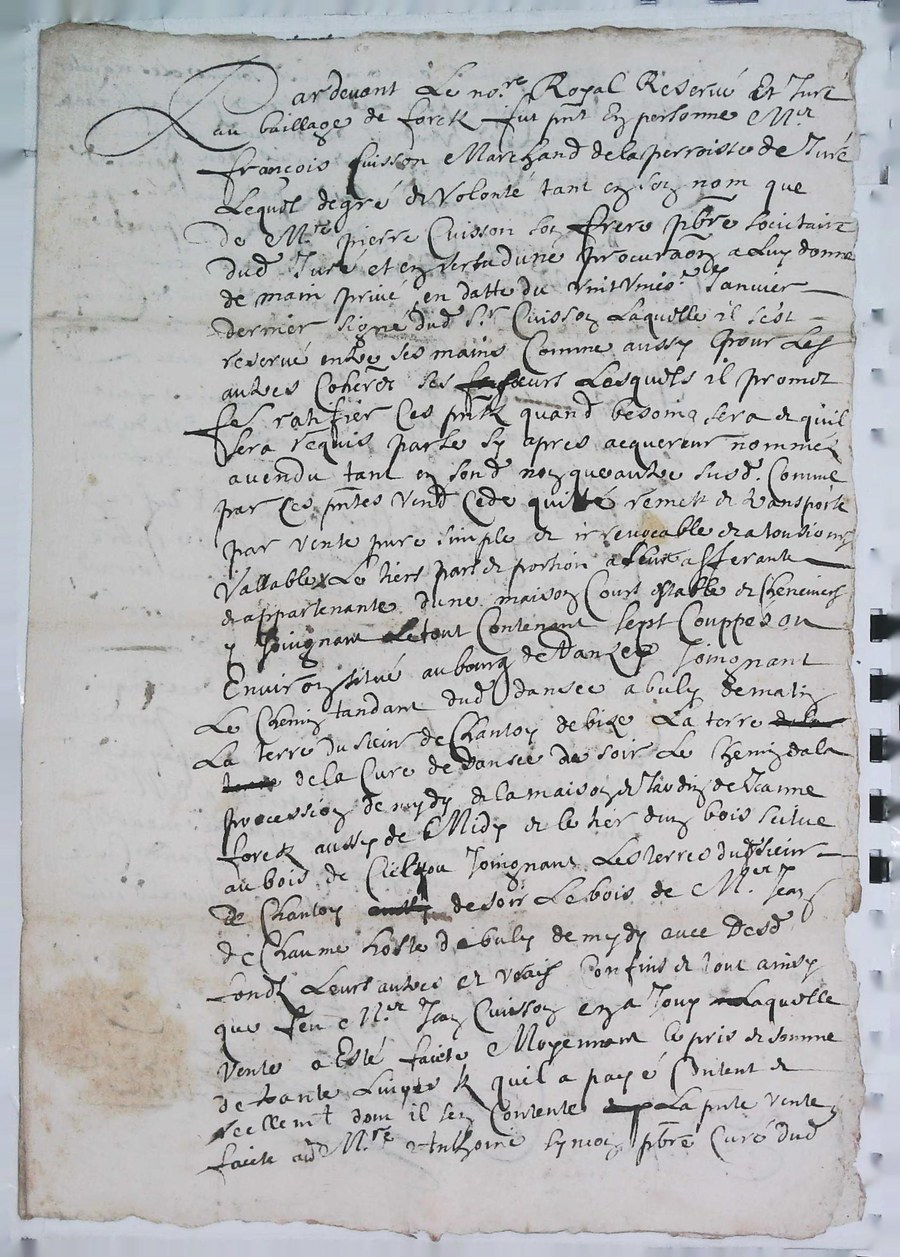 Pardevant Le no.re Royal Reservé Et Juré
au bailliage de forestz fut pnt En personne Mr
françois Cuisson Marchand de la perroisse de Juré
Lequel de gré et Volonté tant en son nom que
de M.re pierre Cuisson son frere pbre societaire
dud Juré et en vertu d'une procuraon a Luy donné
de main privé en datte du vint Janvier
dernier signé dud Sr Cuisson Laquelle il s'est
reservé entre ses mains Comme aussy pour Les
autres Coherers ses sœurs Lesquels il promet
fe. ratiffier Ces pntes quand besoing sera et quil
sera requis par le sy apres acquereur nommé
a vendu tant en sond non que autre susd. Comme
par Ces pntes vend Cede quitté remett et transporte
par vente pure simple et irrevocable et a tousiours
Vallable Le tiers part et portion a afferante
et appartenante d'une maison Court estable et Cheneviers
y Joignant Le tout Contenant sept Couppes ou
Environ situé au bourg de Joignant
Le Chemin tandant dud dansee a buly de matin
La terre du sieur de Chantoy de bize La terre
de la Cure de dansee de soir Le Chemin de la
procession de mydy et la maison et Jardin de Jeanne
forestz aussy de Midy et le tier d'un bois scitue
au bois de Joignant Les terres dud sieur
de Chantoy de soir Le bois de M.er Jean
de Chaume hoste de buly de mydy avec Desd
fondz Leurs autres et vrais Confins et tout ainsy
que feu Mer Jean Cuisson en a Jouy Laquelle
vente a Esté faicte Moyennant le pris et somme
de trante Livres quil a payé Content et
reellemt dont il sen Contente La pnte vente
faicte aud M.re Anthoine Symon pbre Curé dud